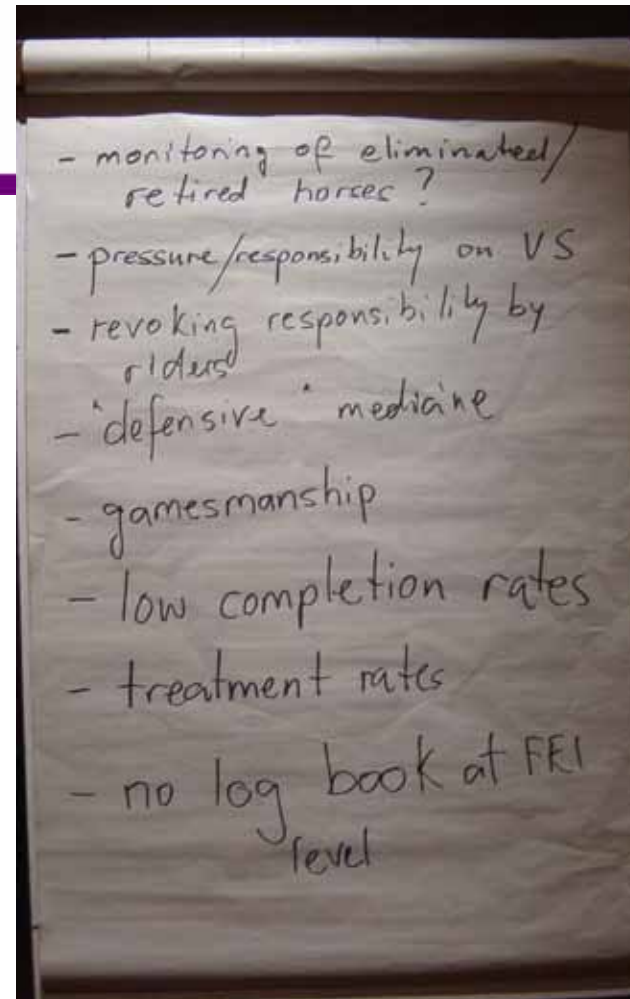 - monitoring of eliminated/
retired horses?
- pressure/responsibility on VS
- revoking responsibility by
riders
- "defensive" medicine
- gamesmanship
- low completion rates
- treatment rates
- no log book at FEI
level